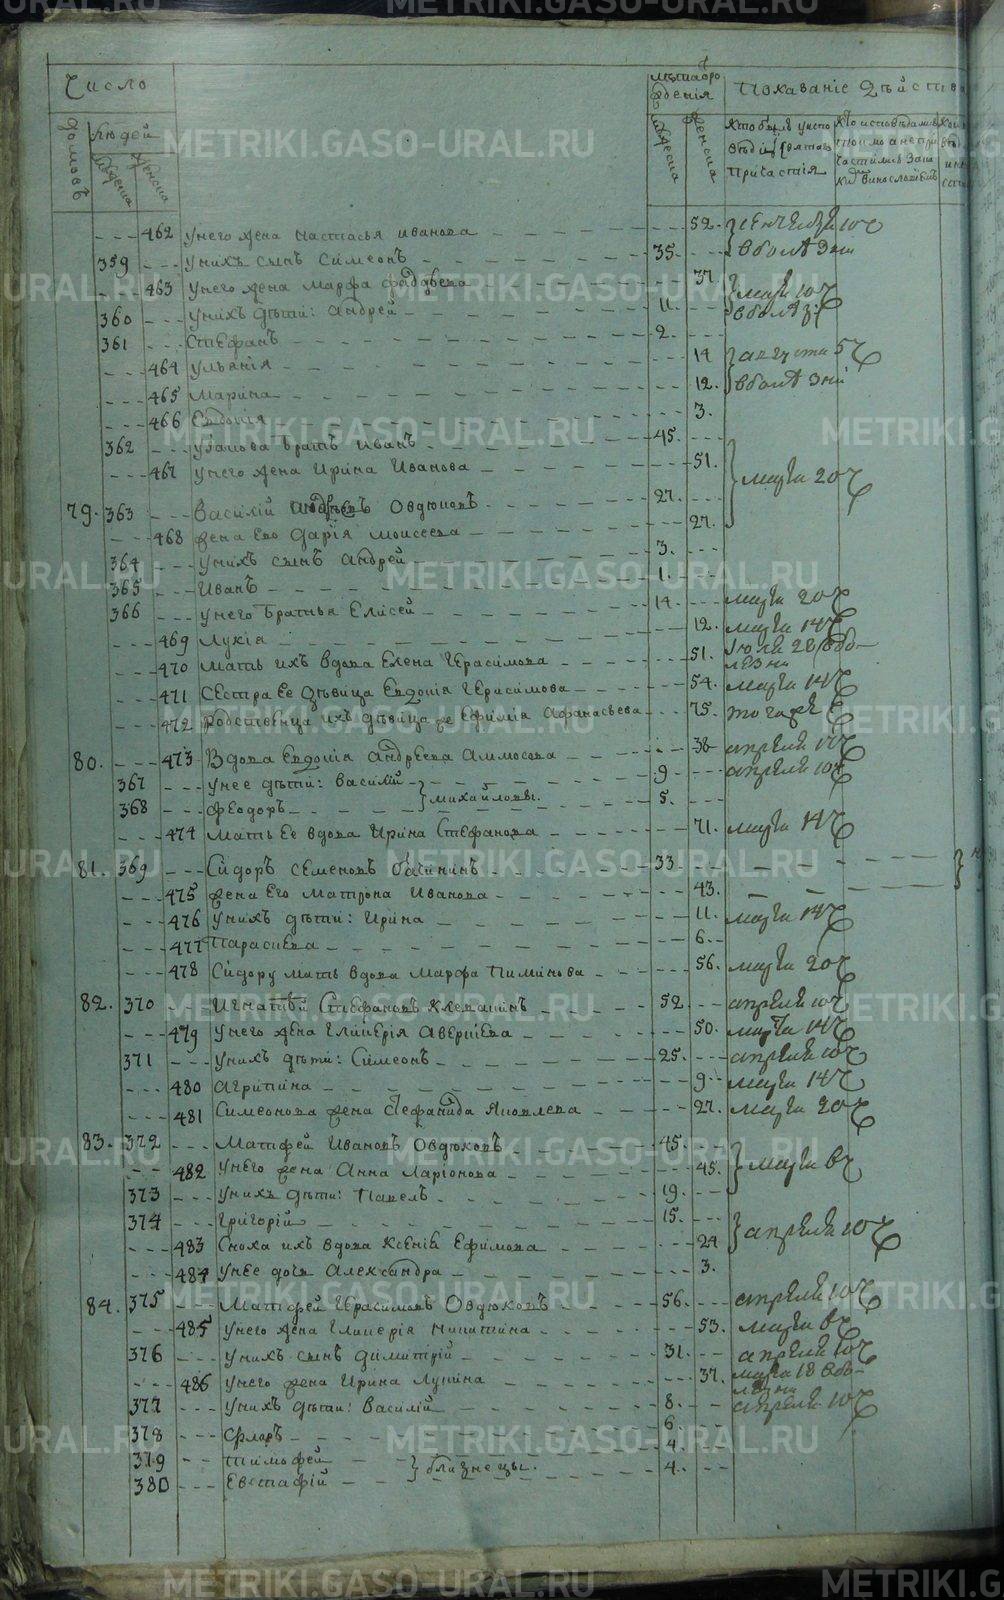 Число
домовъ
людей
мужеска
женска
лѣта
рожденія
мужеска
женска
Показаніе дѣйства
462 У него жена Настасья Иванова 52. сентября 10 ч
359 У нихъ сынъ Симеонъ 35. в болѣзни
463 У него жена Марфа Фаддѣева 37 марта 10 ч
360 У нихъ дѣти: Андрей 11.
361 Стефанъ 2.
464 Ульянія 14 августа 5 ч
465 Марина 12. в болѣзни
466 Евдокія 3.
362 братъ Иванъ 45.
467 У него жена Ирина Иванова 51. марта 20 ч
79. 363 Василій Андреевъ Овдюковъ 27.
468 жена Его Дарія Моисеева 27.
364 У нихъ сынъ Андрей 3.
365 Иванъ 1.
366 У него братья Елисей 14. марта 20 ч
469 Лукія 12. марта 14 ч
470 Мать ихъ вдова Елена Герасимова 51. Июля 28 в болезни
471 Сестра Ее дѣвица Евдокія Герасимова 54. марта 14 ч
472 Родственица ихъ дѣвица же Ефимія Афанасьева 75. того же ч
80. 473 Вдова Евдокія Андреева Аммосова 38 апреля 10 ч
367 У нее дѣти: Василій 9 апреля 10 ч
368 Феодоръ } Михайловы. 5.
474 Мать Ее вдова Ирина Стефанова 71. марта 14 ч
81. 369 Сидоръ Семеновъ 33
475 жена Его Матрона Иванова 43.
476 У нихъ дѣти: Ирина 11. марта 14 ч
477 Парасковa 6.
478 Сидору мать вдова Марфа Пиминова 56. марта 20 ч
82. 370 Игнатій Стефановъ 52. апреля 10 ч
479 У него жена Гликерія 50. марта 14 ч
371 У нихъ дѣти: Симеонъ 25. апреля 10 ч
480 Агрипина 9 марта 14 ч
481 Симеонова жена Стефанида Яковлева 27. марта 20 ч
83. 372 Матфей Ивановъ Овдюковъ 45.
482 У него жена Анна Ларіонова 45. марта 6 ч
373 У нихъ дѣти: Павелъ 19.
374 Григорій 15.
483 Сноха ихъ вдова Ксенія Ефимова 24 апреля 10 ч
484 У нее дочь Александра 3.
84. 375 Матфей Герасимовъ Овдюковъ 56. апреля 10 ч
485 У него жена Гликерія Никитина 53. марта 6 ч
376 У нихъ сынъ Димитрій 31. апреля 10 ч
486 У него жена Ирина Лукина 37. марта 18 в болезни
377 У нихъ дѣти: Василій 8. апреля 10 ч
378 Флоръ 6.
379 Тимофей 4.
380 Евстафій } близнецы. 4.
METRIKI.GASO-URAL.RU